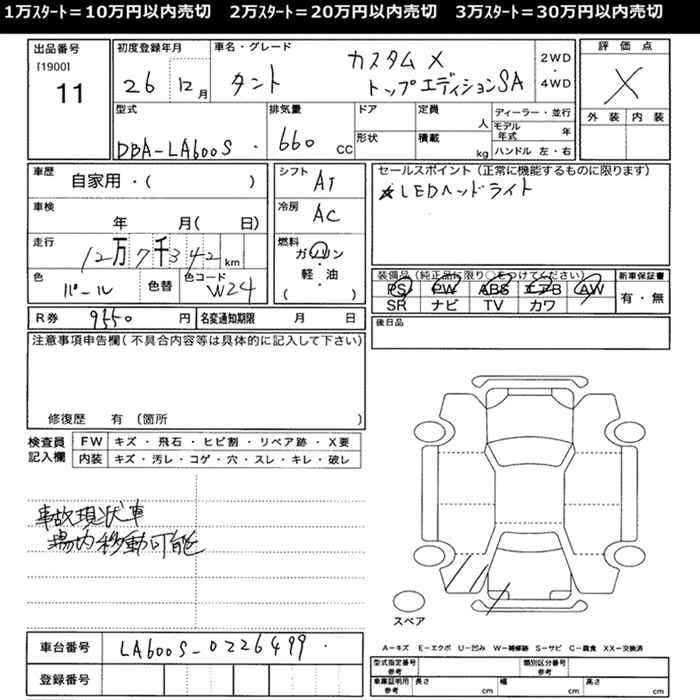 1万ｽﾀｰﾄ＝10万円以内売切　2万ｽﾀｰﾄ＝20万円以内売切　3万ｽﾀｰﾄ＝30万円以内売切
出品番号
[1900]
11
初度登録年月
26 12月
車名・グレード
タント
カスタム X
トップエディションSA
2WD
・
4WD
評価点
X
外装 内装
型式
DBA-LA600S
排気量
660 CC
ドア
形状
定員
人
積載
kg
ディーラー・並行
モデル年式 年
ハンドル 左・右
車歴
自家用・( )
車検
年 月( 日)
走行
12万7千342km
色
パール
色替
色コード
W24
シフト
AT
冷房
AC
燃料
ガソリン
・
軽・油
( )
セールスポイント（正常に機能するものに限ります）
★LEDヘッドライト
装備品（純正品に限り○をつけてください）
PS PW ABS エアB AW
SR ナビ TV カワ
新車保証書
有・無
R券 9550 円
名変通知期限 月 日
後日品
注意事項申告欄(不具合内容等は具体的に記入して下さい)
修復歴 有 〔箇所 〕
検査員
記入欄
FW キズ・飛石・ヒビ割・リペア跡・X要
内装 キズ・汚レ・コゲ・穴・スレ・キレ・破レ
事故現状車
場内移動可能
スペア
車台番号 LA600S-0226499
登録番号
A－キズ E－エクボ U－凹み W－補修跡 S－サビ C－腐食 XX－交換済
型式指定番号
参考
類別区分番号
参考
車庫証明用
参考
長さ cm
幅 cm
高さ cm